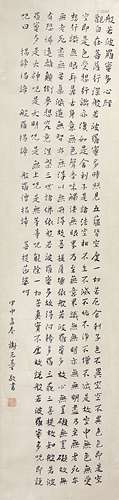 般若波羅蜜多心經
觀自在菩薩行深般若波羅蜜多時照見五蘊皆空度一切苦厄舍利子色不異空空不異色色即是空
空即是色受想行識亦復如是舍利子是諸法空相不生不滅不垢不淨不增不減是故空中無色無受
想行識無眼耳鼻舌身意無色聲香味觸法無眼界乃至無意識界無無明亦無無明盡乃至無老死
亦無老死盡無苦集滅道無智亦無得以無所得故菩提薩埵依般若波羅蜜多故心無罣礙無罣礙
故無有恐怖遠離顛倒夢想究竟涅槃三世諸佛依般若波羅蜜多故得阿耨多羅三藐三菩提故知般若波
羅蜜多是大神呪是大明呪是無上呪是無等等呪能除一切苦真實不虛故說般若波羅蜜多呪即說
呪曰 揭諦揭諦 般羅揭諦 般羅僧揭諦 菩提薩婆訶
甲申孟冬 謝无量敬書